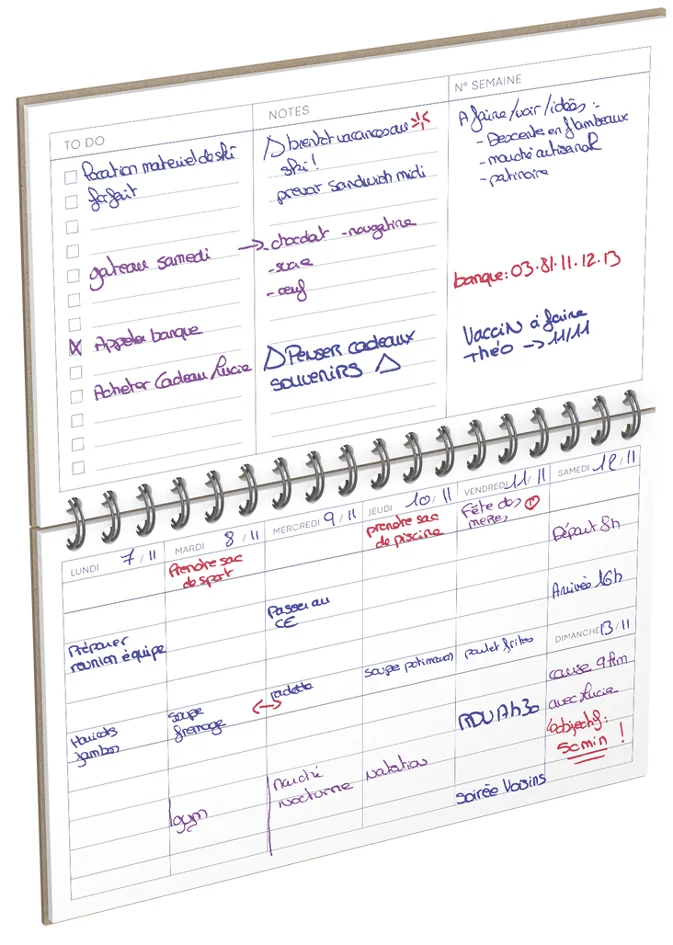 TO DO
location materiel de ski
forfait
gateau samedi
Appeler banque
Acheter Cadeau Lucie
NOTES
bientot vacances au
ski !
prevoir sandwich midi
→ chocolat - nougatine
- sucre
- œuf
PENSER CADEAUX
SOUVENIRS
N° SEMAINE
A faire/voir/idées :
- Descente en flambeaux
- marché artisanal
- patinoire
banque: 03.81.11.12.13
VACCIN à faire
THÉO → 11/11
LUNDI 7/11
Préparer
reunion équipe
Haricots
jambon
MARDI 8/11
Prendre sac
de sport
Soupe
fromage
gym
MERCREDI 9/11
Passer au
CE
raclette
marché
nocturne
JEUDI 10/11
prendre sac
de piscine
Soupe potimarron
natation
VENDREDI 11/11
Fête des
mères
poulet frites
soirée Voisins
SAMEDI 12/11
Départ 8h
Arrivée 16h
DIMANCHE 13/11
course 9 km
avec Lucie
objectif:
50 min !